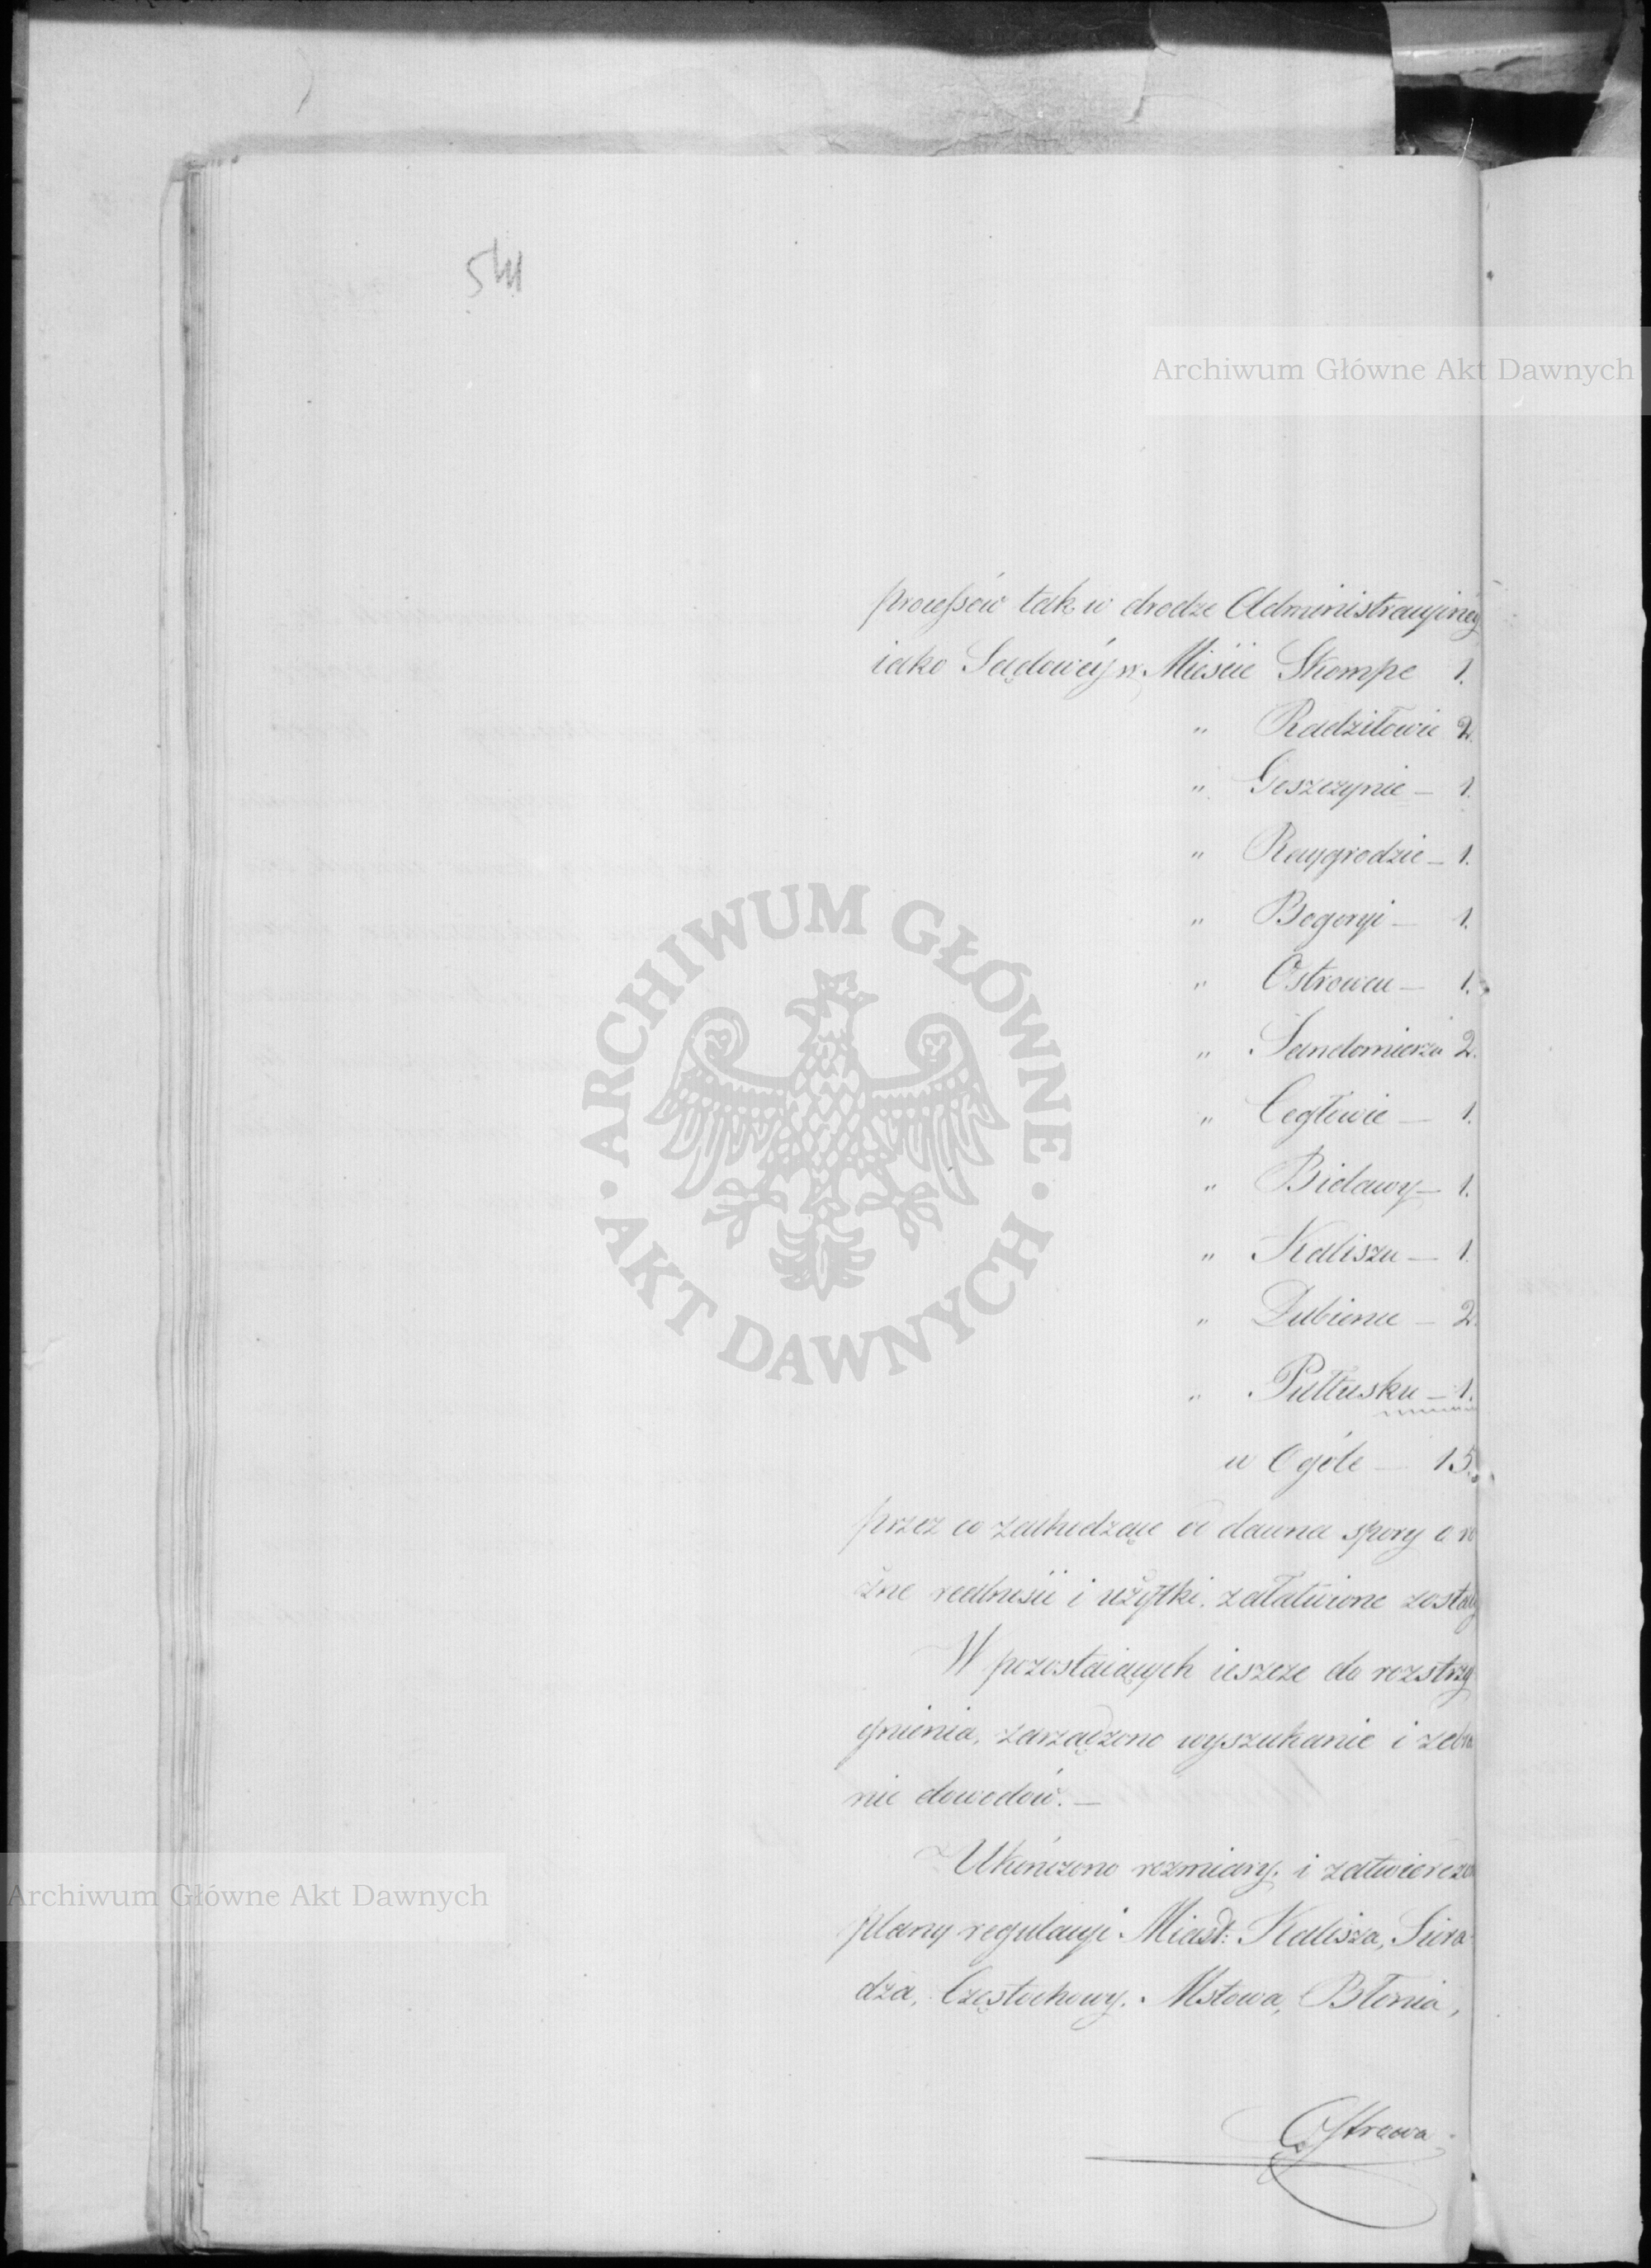 Archiwum Główne Akt Dawnych
processów tak w drodze Administracyinéy
iako Sądowéy w Mieście Skompe 1.
" Radziłowie 2.
" Goszczynie — 1.
" Raygrodzie — 1.
" Bogoryi — 1.
" Ostrowcu — 1.
" Sandomierzu 2.
" Cegłowie — 1.
" Bidawy — 1.
" Kaliszu — 1.
" Dubience — 2.
" Pułtusku — 1.
w Ogóle — 15.
przez co zachodzące od dawna spory o ro
żne realności i użytki, załatwione zostały
W pozostaiących ieszcze do rozstrzy
gnienia, zarządzono wyszukanie i zebra
nie dowodów. —
Ukończono rozmiary, i zatwierdzo
plany regulacyi Miast: Kalisza, Siera-
dza, Częstochowy, Mstowa, Błonia,
Ostrowa
ARCHIWUM GŁÓWNE AKT DAWNYCH
Archiwum Główne Akt Dawnych